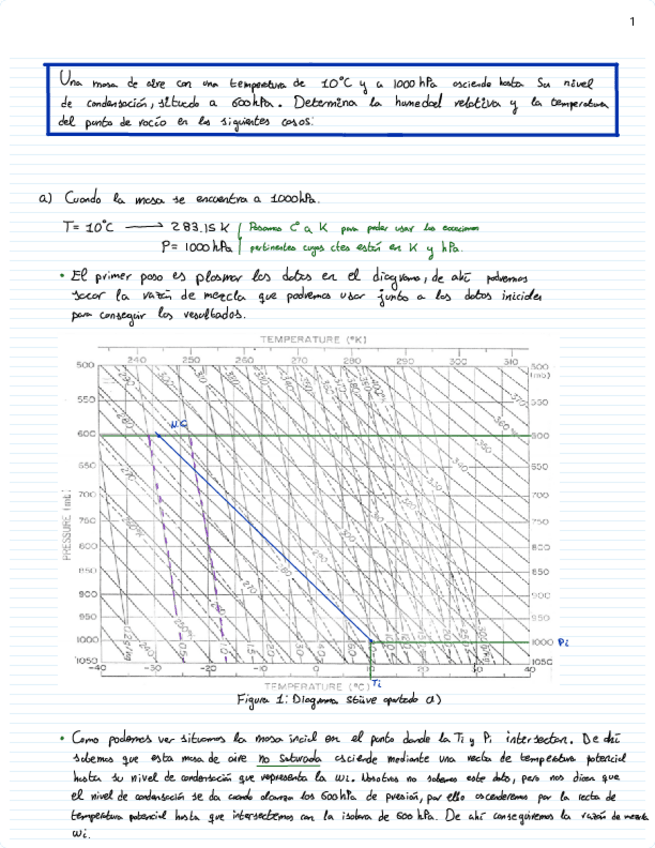 1
Una masa de aire con una temperatura de 10°C y a 1000 hPa asciende hasta su nivel
de condensación, situado a 600 hPa. Determina la humedad relativa y la temperatura
del punto de rocío en los siguientes casos:
a) Cuando la masa se encuentra a 1000 hPa.
T= 10°C → 283.15 K | Pasamos C° a K para poder usar las ecuaciones
P= 1000 hPa | pertinentes cuyas ctes están en K y hPa.
• El primer paso es plasmar los datos en el diagrama, de ahí podremos
sacar la razón de mezcla que podremos usar junto a los datos iniciales
para conseguir los resultados.
TEMPERATURE (°K)
240 250 260 270 280 290 300 310
500 500
(mb)
550 550
N.C
600 600
650 650
700 700
750 750
800 800
850 850
900 900
950 950
1000 1000 Pi
1050 1050
PRESSURE (mb)
-40 -30 -20 -10 0 10 20 30 40
Ti
TEMPERATURE (°C)
Figura 1: Diagrama Stüve apartado a)
• Como podemos ver situamos la masa incial en el punto donde la Ti y Pi intersectan. De ahí
sabemos que esta masa de aire no saturada asciende mediante una recta de temperatura potencial
hasta su nivel de condensación que representa la wi. Nosotros no sabemos este dato, pero nos dicen que
el nivel de condensación se da cuando alcanza los 600 hPa de presión, por ello ascenderemos por la recta de
temperatura potencial hasta que intersectemos con la isobara de 600 hPa. De ahí conseguiremos la razón de mezcla
wi.